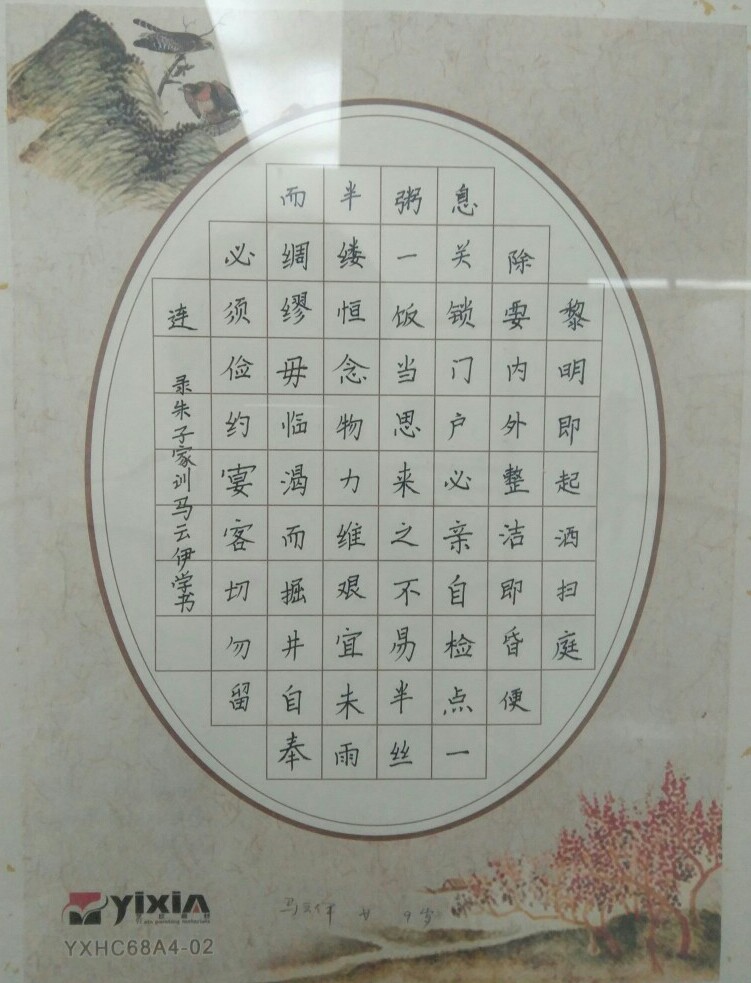 黎明即起洒扫庭
除要内外整洁即昏便
息关锁门户必亲自检点一
粥一饭当思来之不易半丝
半缕恒念物力维艰宜未雨
而绸缪毋临渴而掘井自奉
必须俭约宴客切勿留
连
录朱子家训马云伊学书
马云伊 女 9岁
YIXIA
YXHC68A4-02